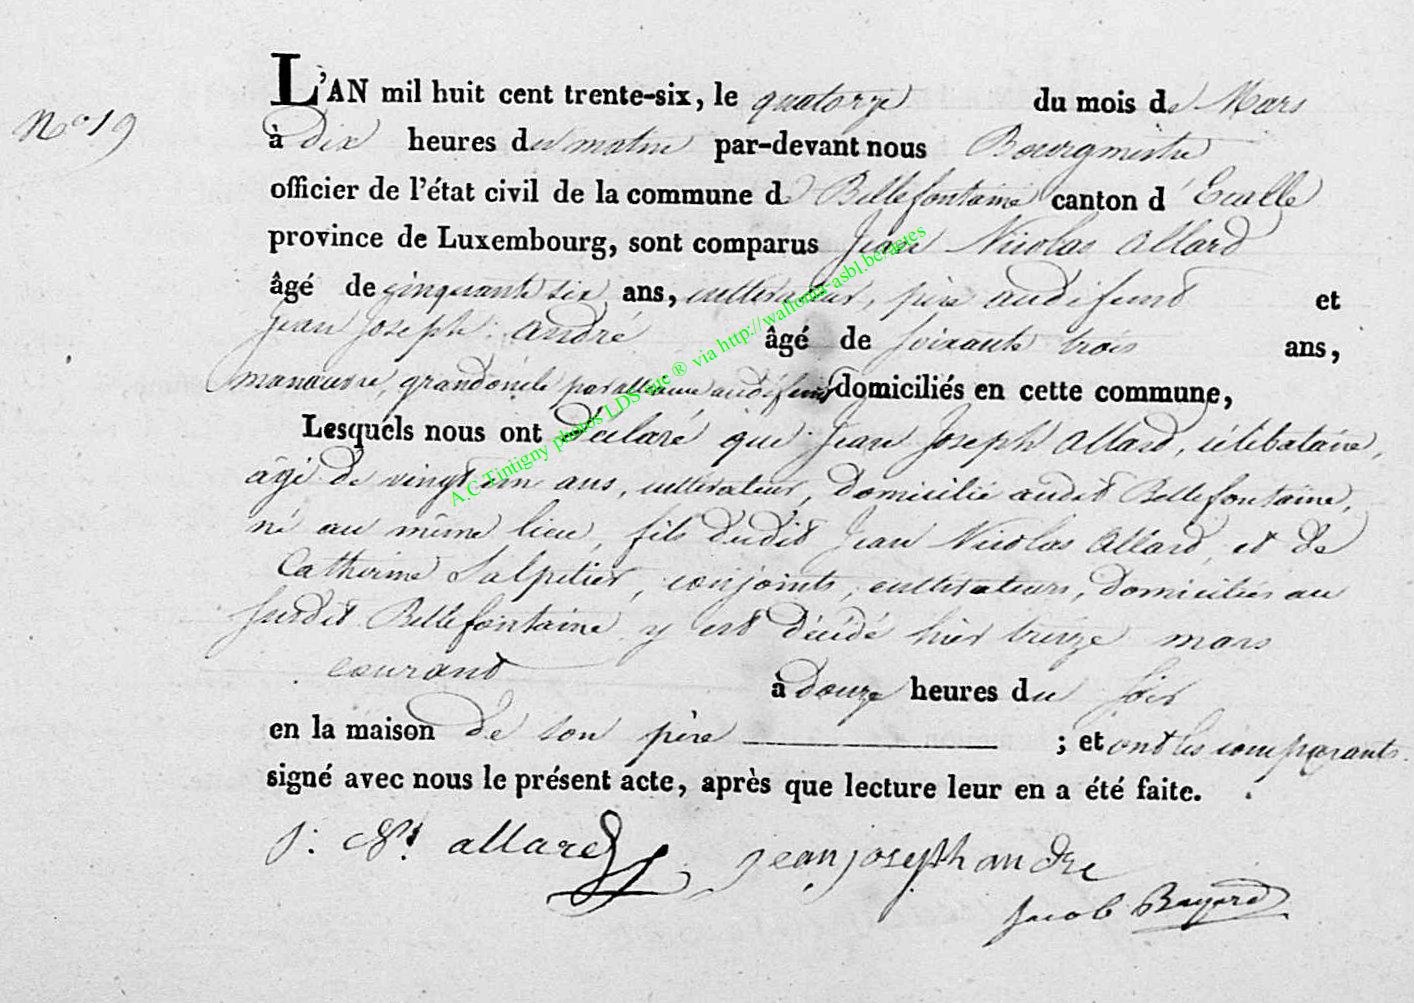 N° 19
L'AN mil huit cent trente-six, le quatorze du mois de Mars
à dix heures du matin par-devant nous Bourgmestre
officier de l'état civil de la commune de Bellefontaine canton d'Etalle
province de Luxembourg, sont comparus Jean Nicolas Allard
âgé de cinquante six ans, cultivateur, père audéfunt et
Jean Joseph André âgé de soixante trois ans,
manœuvre, grandoncle par alliance audéfunt domiciliés en cette commune,
Lesquels nous ont déclaré que Jean Joseph Allard, célibataire,
âgé de vingt un ans, cultivateur, domicilié audit Bellefontaine,
né au même lieu, fils dudit Jean Nicolas Allard, et de
Catherine Salpetier, conjoints, cultivateurs, domiciliés au
susdit Bellefontaine y est décédé hier treize mars
courant à douze heures du soir
en la maison de son père ; et ont les comparants
signé avec nous le présent acte, après que lecture leur en a été faite.
J: allard jean joseph andre
Jacob Bayard
A.C Tintigny photos LDS-sue ® via http://wallonia-asbl.be/actes